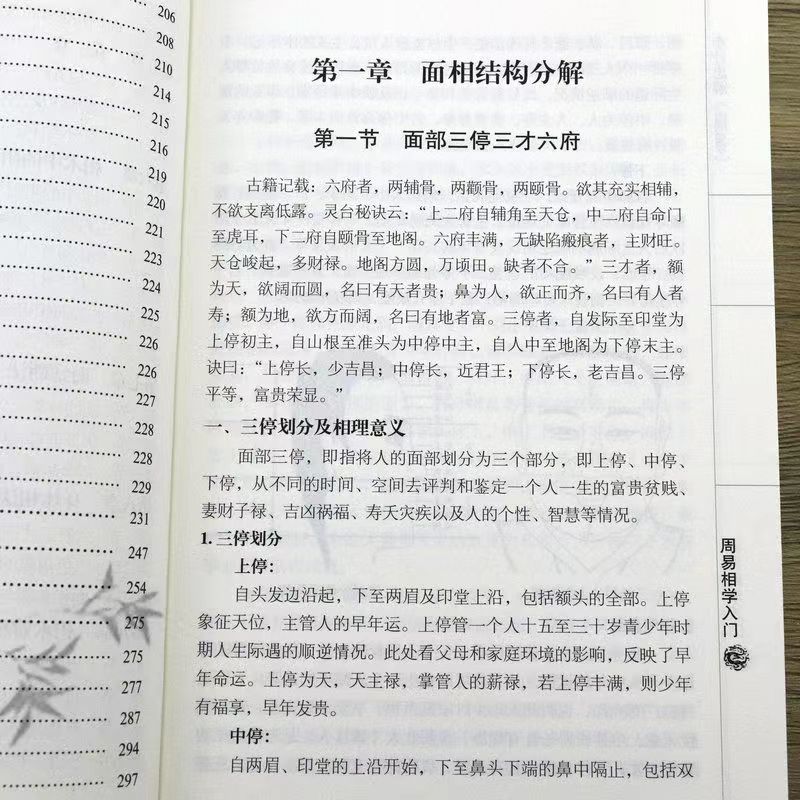 206
208
210
214
215
216
219
220
221
223
224
225
226
226
227
228
228
229
231
247
254
275
275
277
287
294
297
第一章 面相结构分解
第一节 面部三停三才六府
古籍记载：六府者，两辅骨，两颧骨，两颐骨。欲其充实相辅，
不欲支离低露。灵台秘诀云：“上二府自辅角至天仓，中二府自命门
至虎耳，下二府自颐骨至地阁。六府丰满，无缺陷瘢痕者，主财旺。
天仓峻起，多财禄。地阁方圆，万顷田。缺者不合。”三才者，额
为天，欲阔而圆，名曰有天者贵；鼻为人，欲正而齐，名曰有人者
寿；额为地，欲方而阔，名曰有地者富。三停者，自发际至印堂为
上停初主，自山根至准头为中停中主，自人中至地阁为下停末主。
诀曰：“上停长，少吉昌；中停长，近君王；下停长，老吉昌。三停
平等，富贵荣显。”
一、三停划分及相理意义
面部三停，即指将人的面部划分为三个部分，即上停、中停、
下停，从不同的时间、空间去评判和鉴定一个人一生的富贵贫贱、
妻财子禄、吉凶祸福、寿夭灾疾以及人的个性、智慧等情况。
1. 三停划分
上停：
自头发边沿起，下至两眉及印堂上沿，包括额头的全部。上停
象征天位，主管人的早年运。上停管一个人十五至三十岁青少年时
期人生际遇的顺逆情况。此处看父母和家庭环境的影响，反映了早
年命运。上停为天，天主禄，掌管人的薪禄，若上停丰满，则少年
有福享，早年发贵。
中停：
自两眉、印堂的上沿开始，下至鼻头下端的鼻中隔止，包括双
周易相学入门